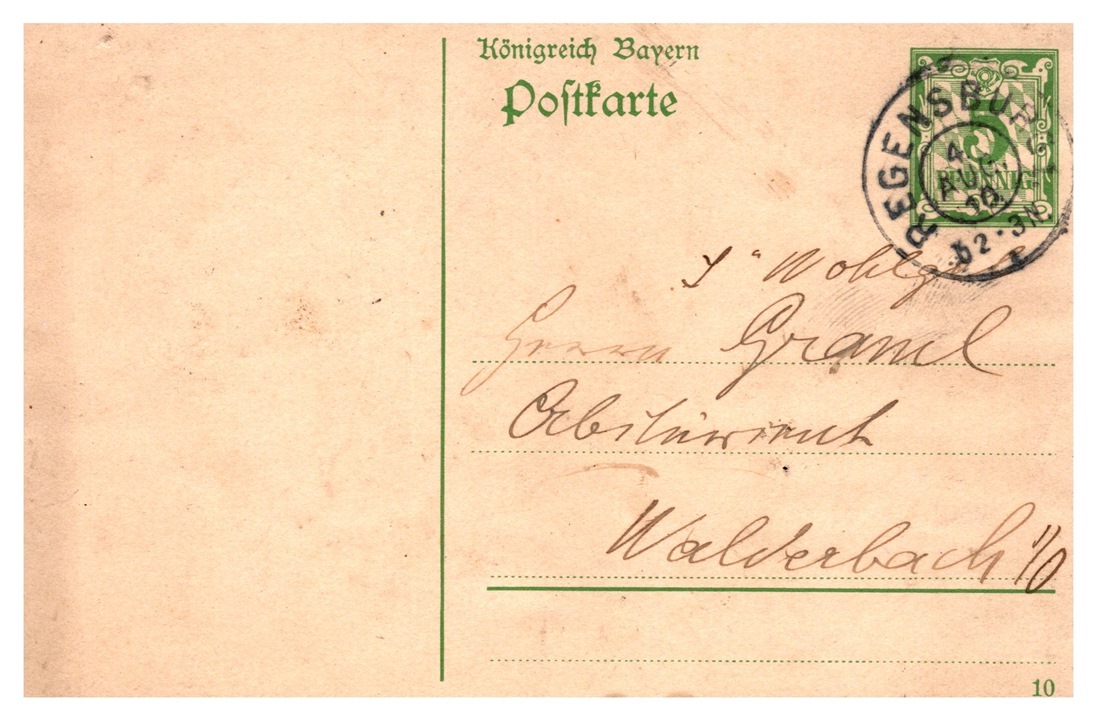 Königreich Bayern
Postkarte
5
PFENNIG
REGENSBURG
4
AUG
10
2-3N.
Wohlgeb
Herrn Graml
Walderbach
10